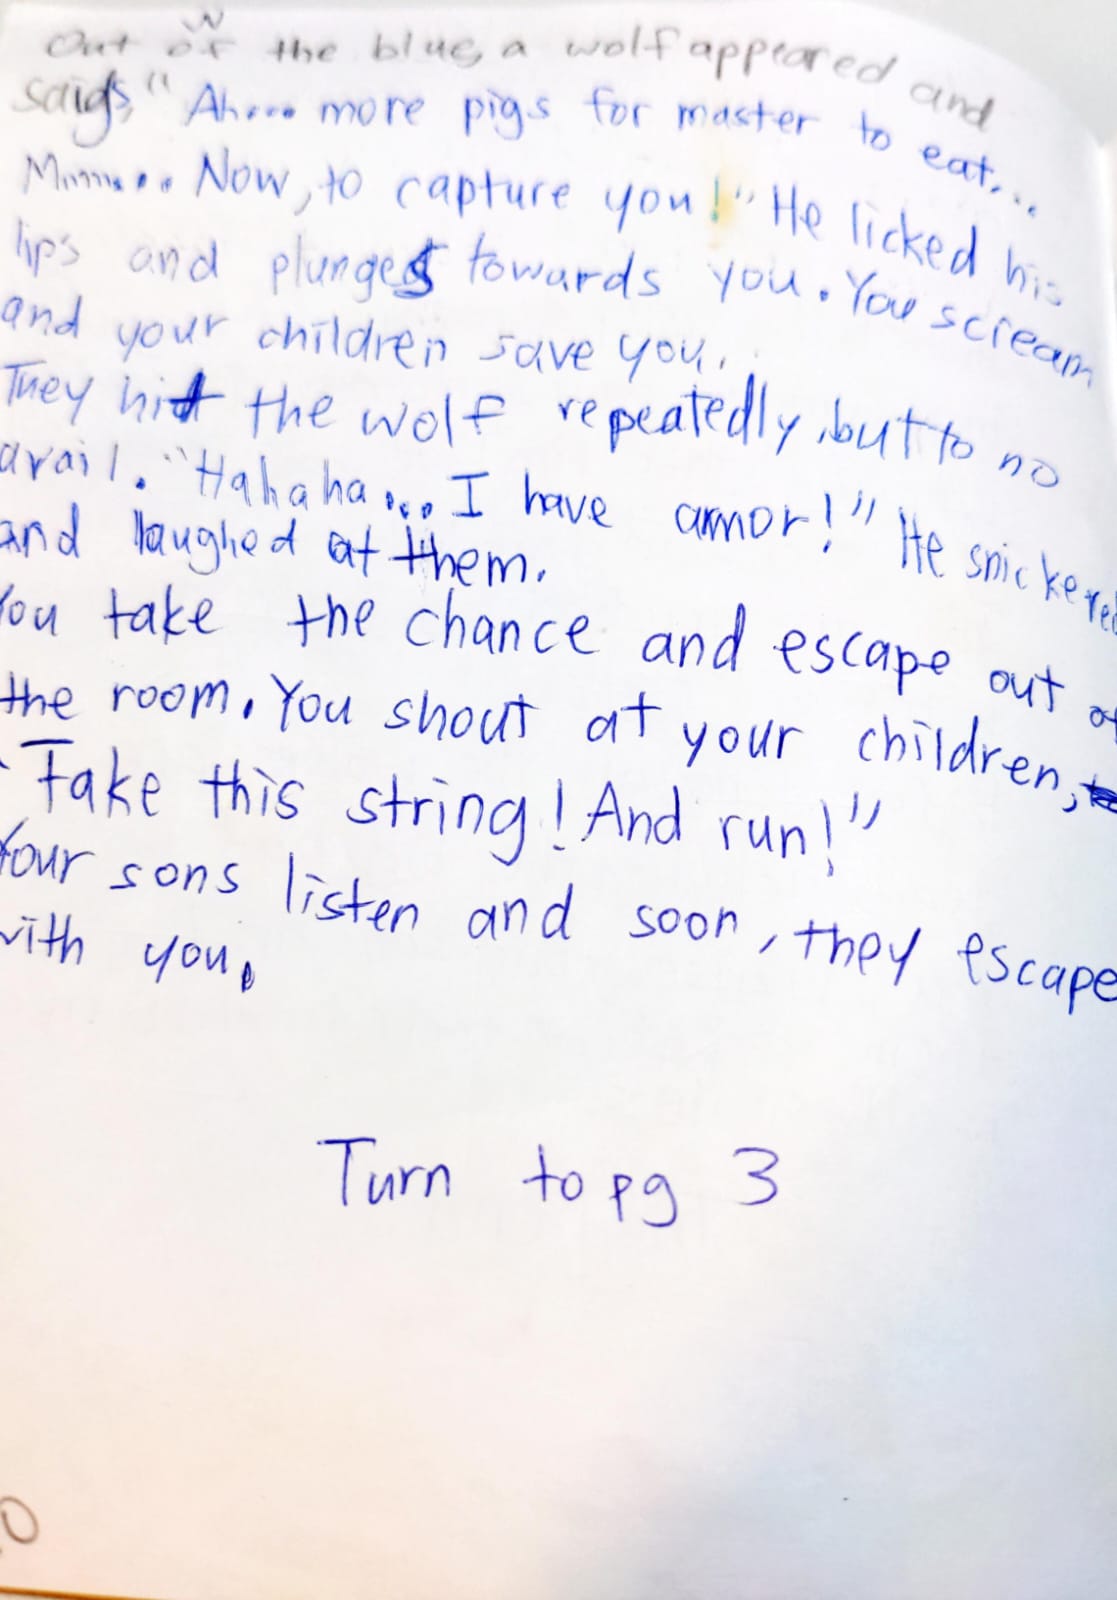 Out of the blue, a wolf appeared and
says, "Ah.... more pigs for master to eat...
Mmmm... Now, to capture you!" He licked his
lips and plunges towards you. You scream
and your children save you.
They hit the wolf repeatedly, but to no
avail. "Hahaha... I have armor!" He snickered
and laughed at them.
You take the chance and escape out of
the room. You shout at your children,
"Take this string! And run!"
Your sons listen and soon, they escape
with you.
Turn to pg 3